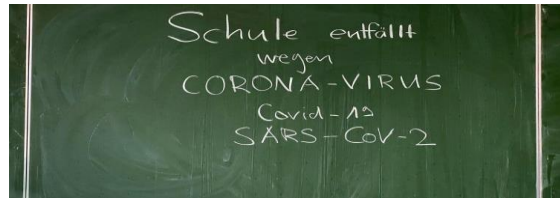 Schule entfällt
wegen
CORONA-VIRUS
Covid-19
SARS-CoV-2